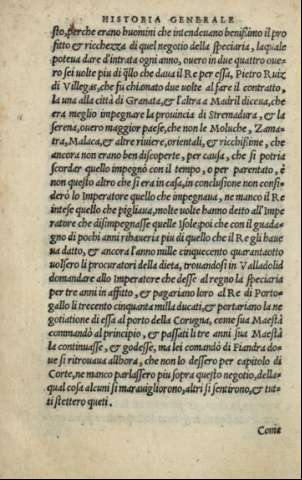 HISTORIA GENERALE
sto, perche erano huomini che intendeuano benißimo il pro
fitto & ricchezza di quel negotio della speciaria, laquale
poteua dare d'intrata ogni anno, ouero in due quattro oue-
ro sei volte piu di q̃llo che daua il Re per essa, Pietro Ruiz
di Villegas, che fu chiamato due uolte al fare il contratto,
la una alla città di Granata, & l'altra a Madril diceua, che
era meglio impegnare la prouincia di Stremadura, & la
serena, ouero maggior paese, che non le Moluche, Zama-
tra, Malaca, & altre riuiere, orientali, & ricchißime, che
ancora non erano ben discoperte, per causa, che si potria
scordar quello impegnò con il tempo, o per parentato, è
non questo altro che si era in casa, in conclusione non consi-
derò lo Imperatore quello che impegnaua, ne manco il Re
intese quello che pigliaua, molte uolte hanno detto all'Impe
ratore che disimpegnasse quelle Isole: poi che con il guada-
gno di pochi anni rihaueria piu di quello che il Re gli haue
ua datto, & ancora l'anno mille cinquecento quarantaotto
uolsero li procuratori della dieta, trouandosi in Valladolid
domandare allo Imperatore che desse al regno la speciaria
per tre anni in affitto, & pagariano loro al Re di Porto-
gallo li trecento cinquanta milla ducati, & portariano la ne
gotiatione di essa al porto della Corugna, come sua Maestà
commandò al principio, & passati li tre anni sua Maestà
la continuasse, & godesse, ma lei comandò di Fiandra do-
ue si ritrouaua allhora, che non lo dessero per capitolo di
Corte, ne manco parlassero piu sopra questo negotio, della-
qual cosa alcuni si marauigliorono, altri si sentirono, & tut-
ti stettero queti.
Come